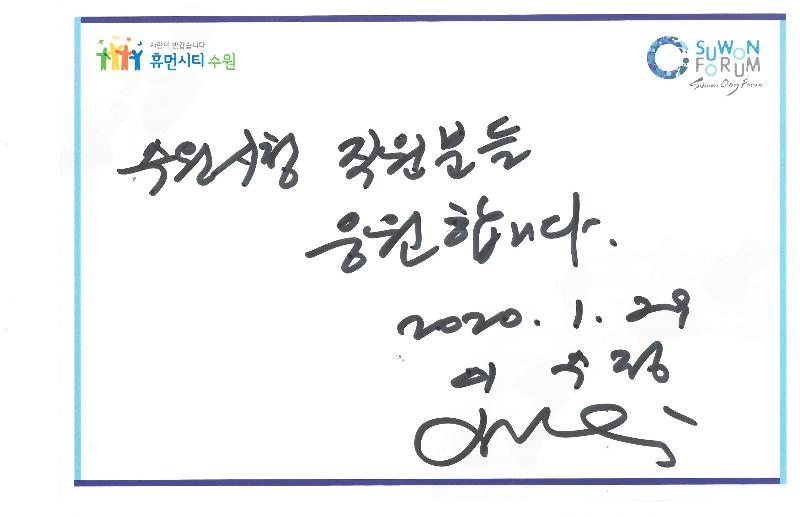 사람이 반갑습니다
휴먼시티 수원
SUWON
FORUM
Suwon City Forum
수원시청 직원분들
응원합니다.
2020. 1. 29
이 수 정